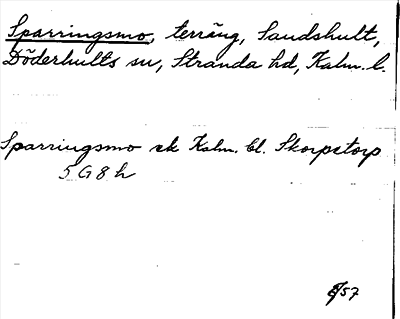 Sparringsmo, terräng, Sandshult,
Döderhults sn, Stranda hd, Kalm. l.
Sparringsmo ek Kalm. bl. Skorpetorp
5 G 8 h
/57